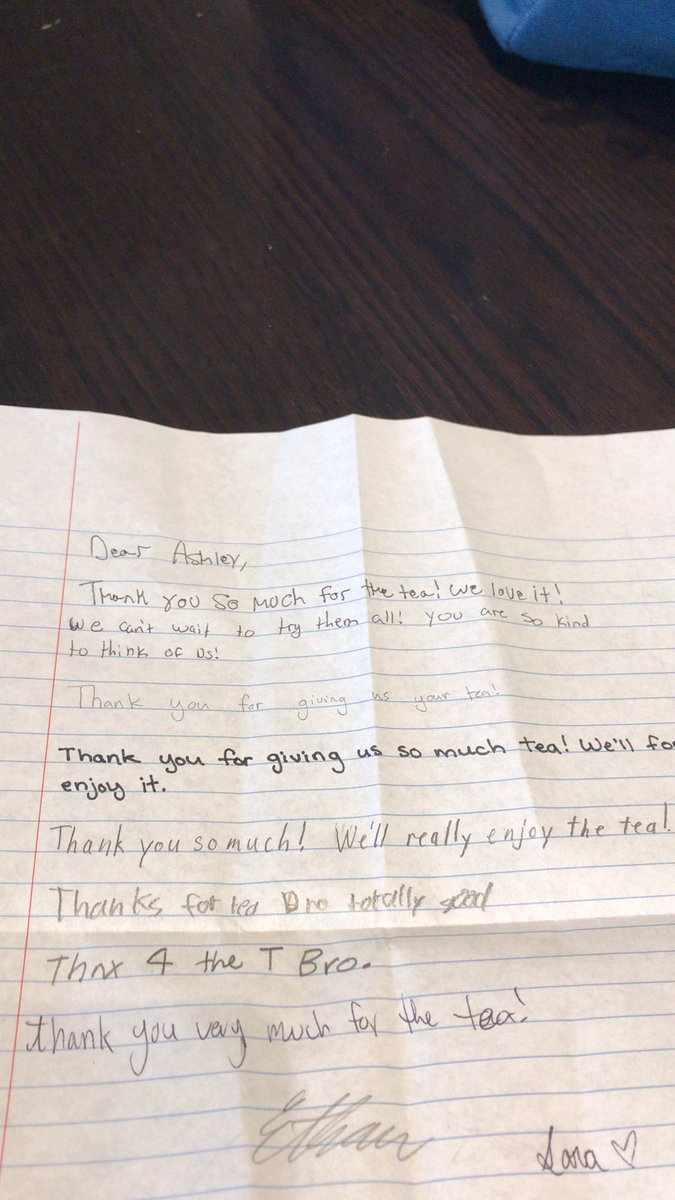 Dear Ashley,
Thank you so much for the tea! We love it!
We can't wait to try them all! You are so kind
to think of us!
Thank you for giving us your tea!
Thank you for giving us so much tea! We'll for
enjoy it.
Thank you so much! We'll really enjoy the tea!
Thanks for tea Bro totally good
Thnx 4 the T Bro.
thank you very much for the tea!
Ethan
Sara ♡